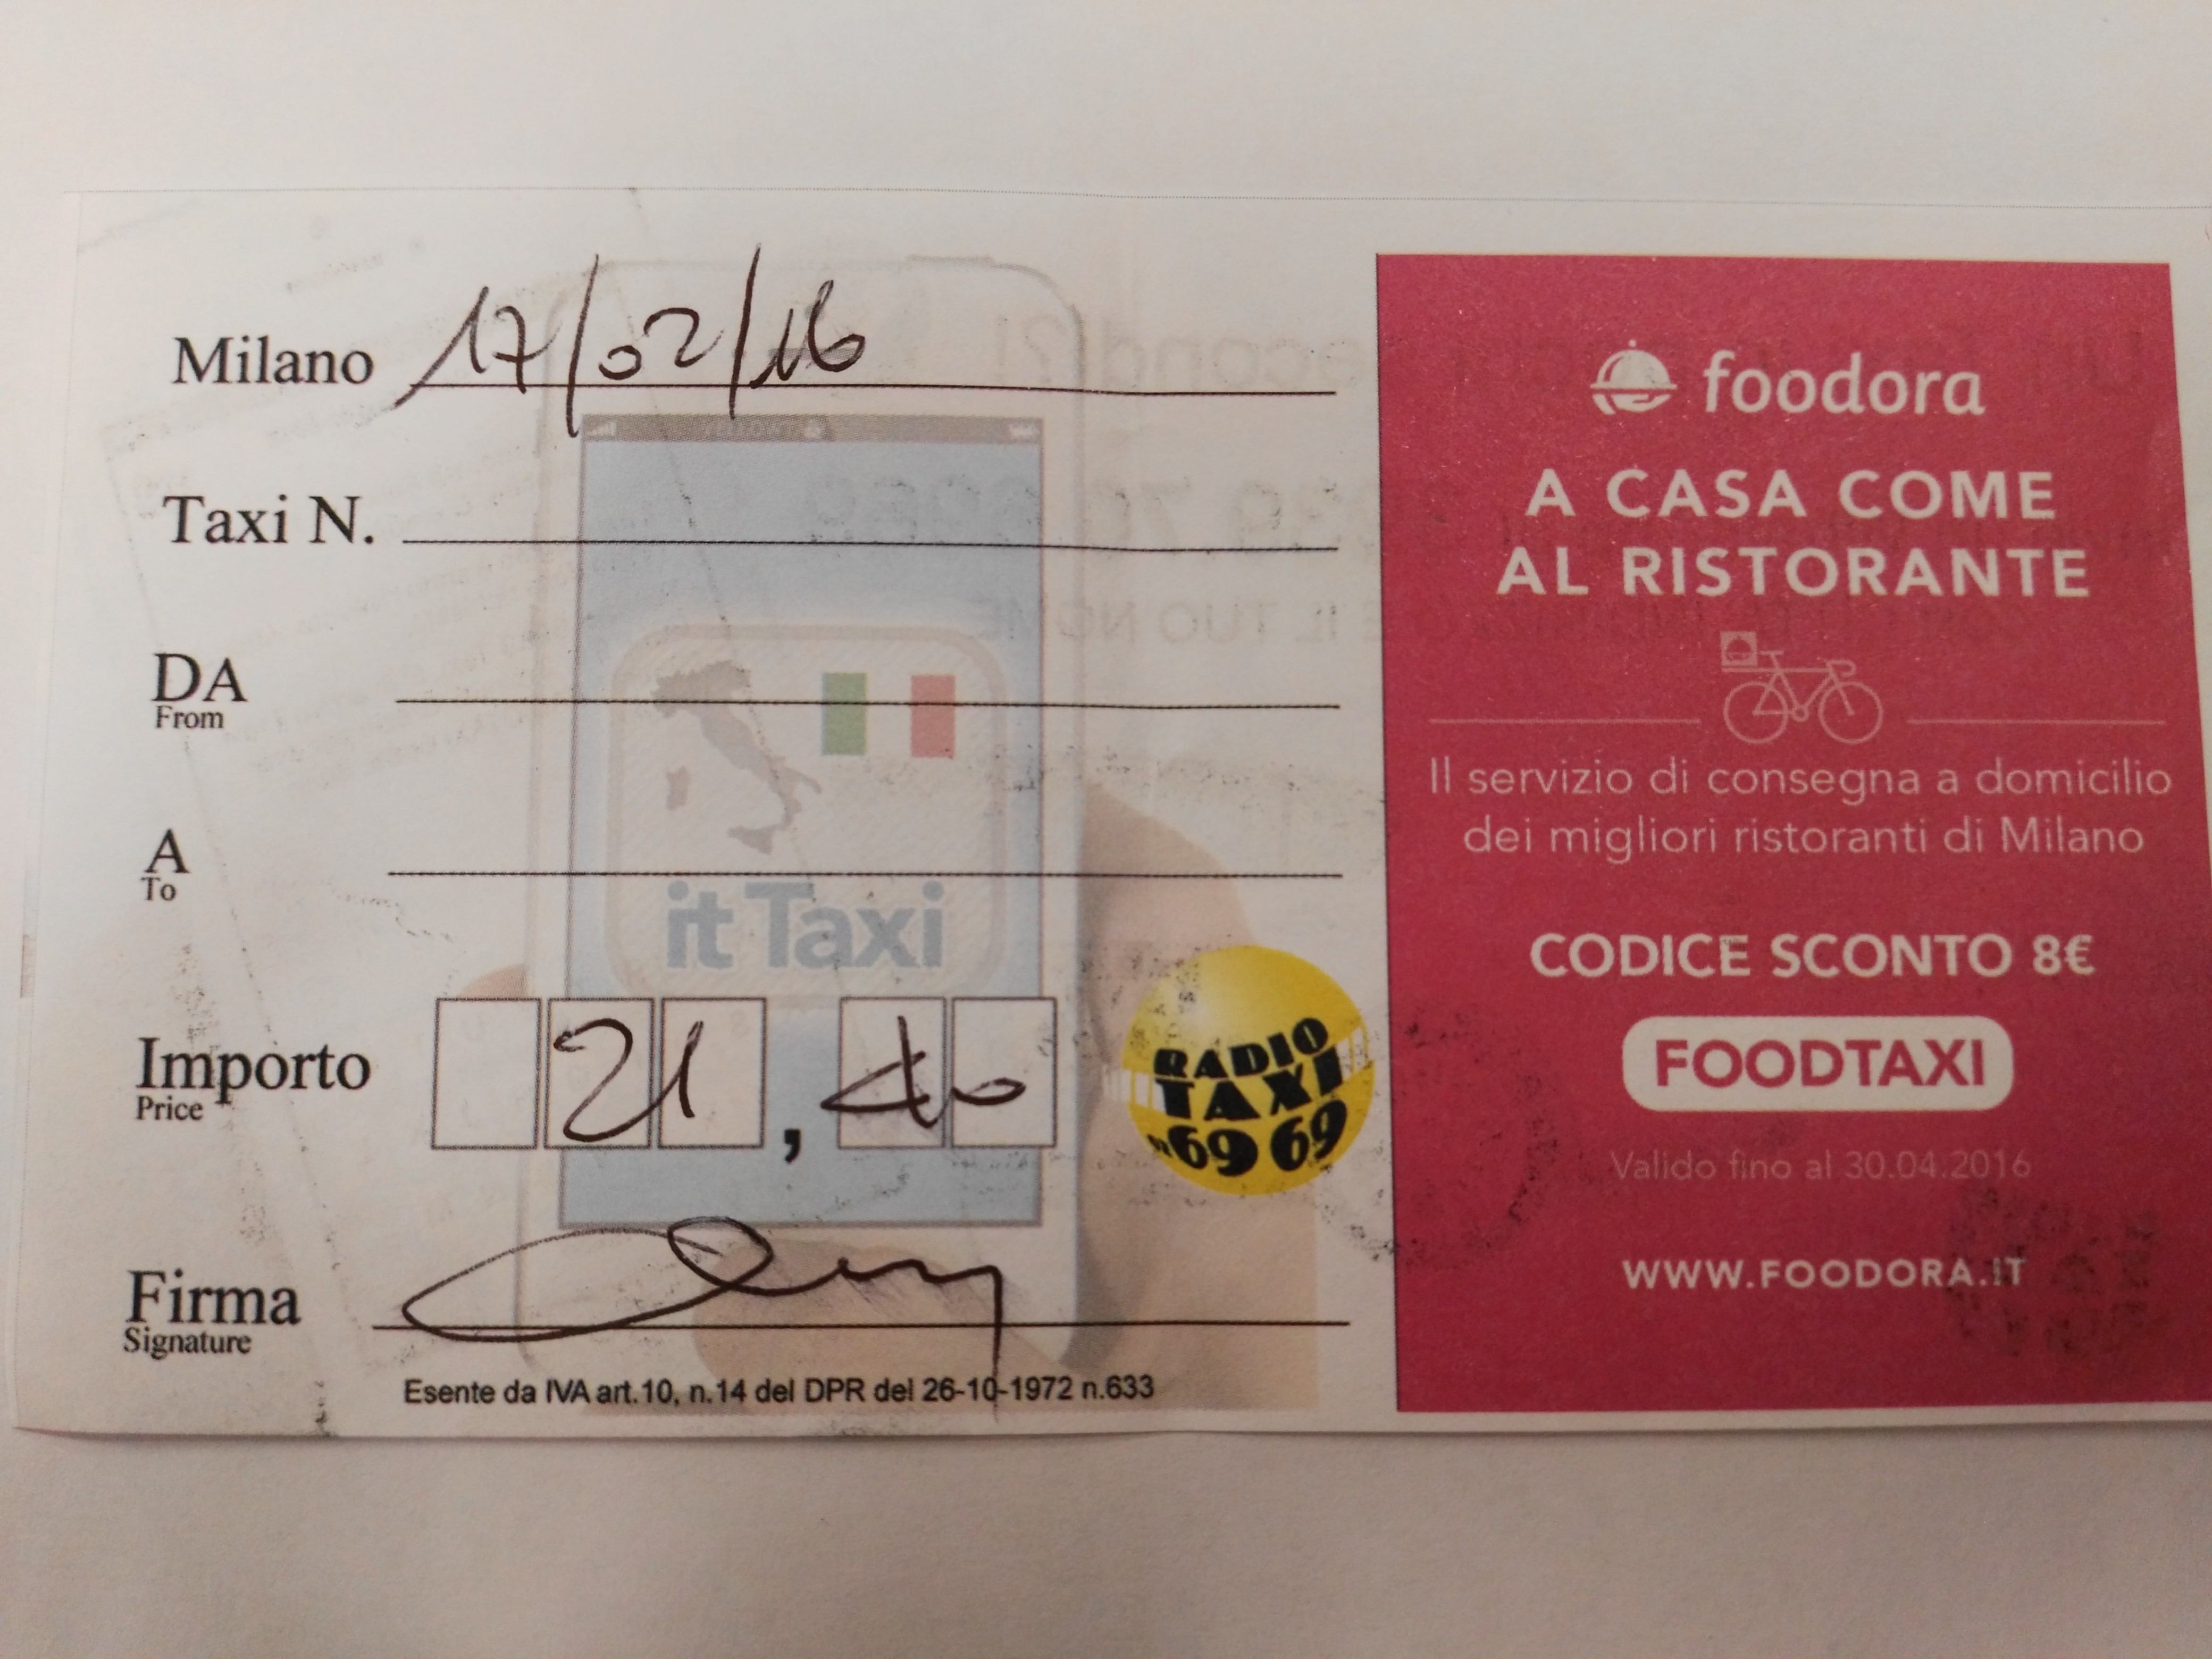 Milano 17/02/16
Taxi N.
DA
From
A
To
it Taxi
Importo 21,40
Price
RADIO
TAXI
02 69 69
Firma
Signature
Esente da IVA art.10, n.14 del DPR del 26-10-1972 n.633
foodora
A CASA COME
AL RISTORANTE
Il servizio di consegna a domicilio
dei migliori ristoranti di Milano
CODICE SCONTO 8€
FOODTAXI
Valido fino al 30.04.2016
WWW.FOODORA.IT